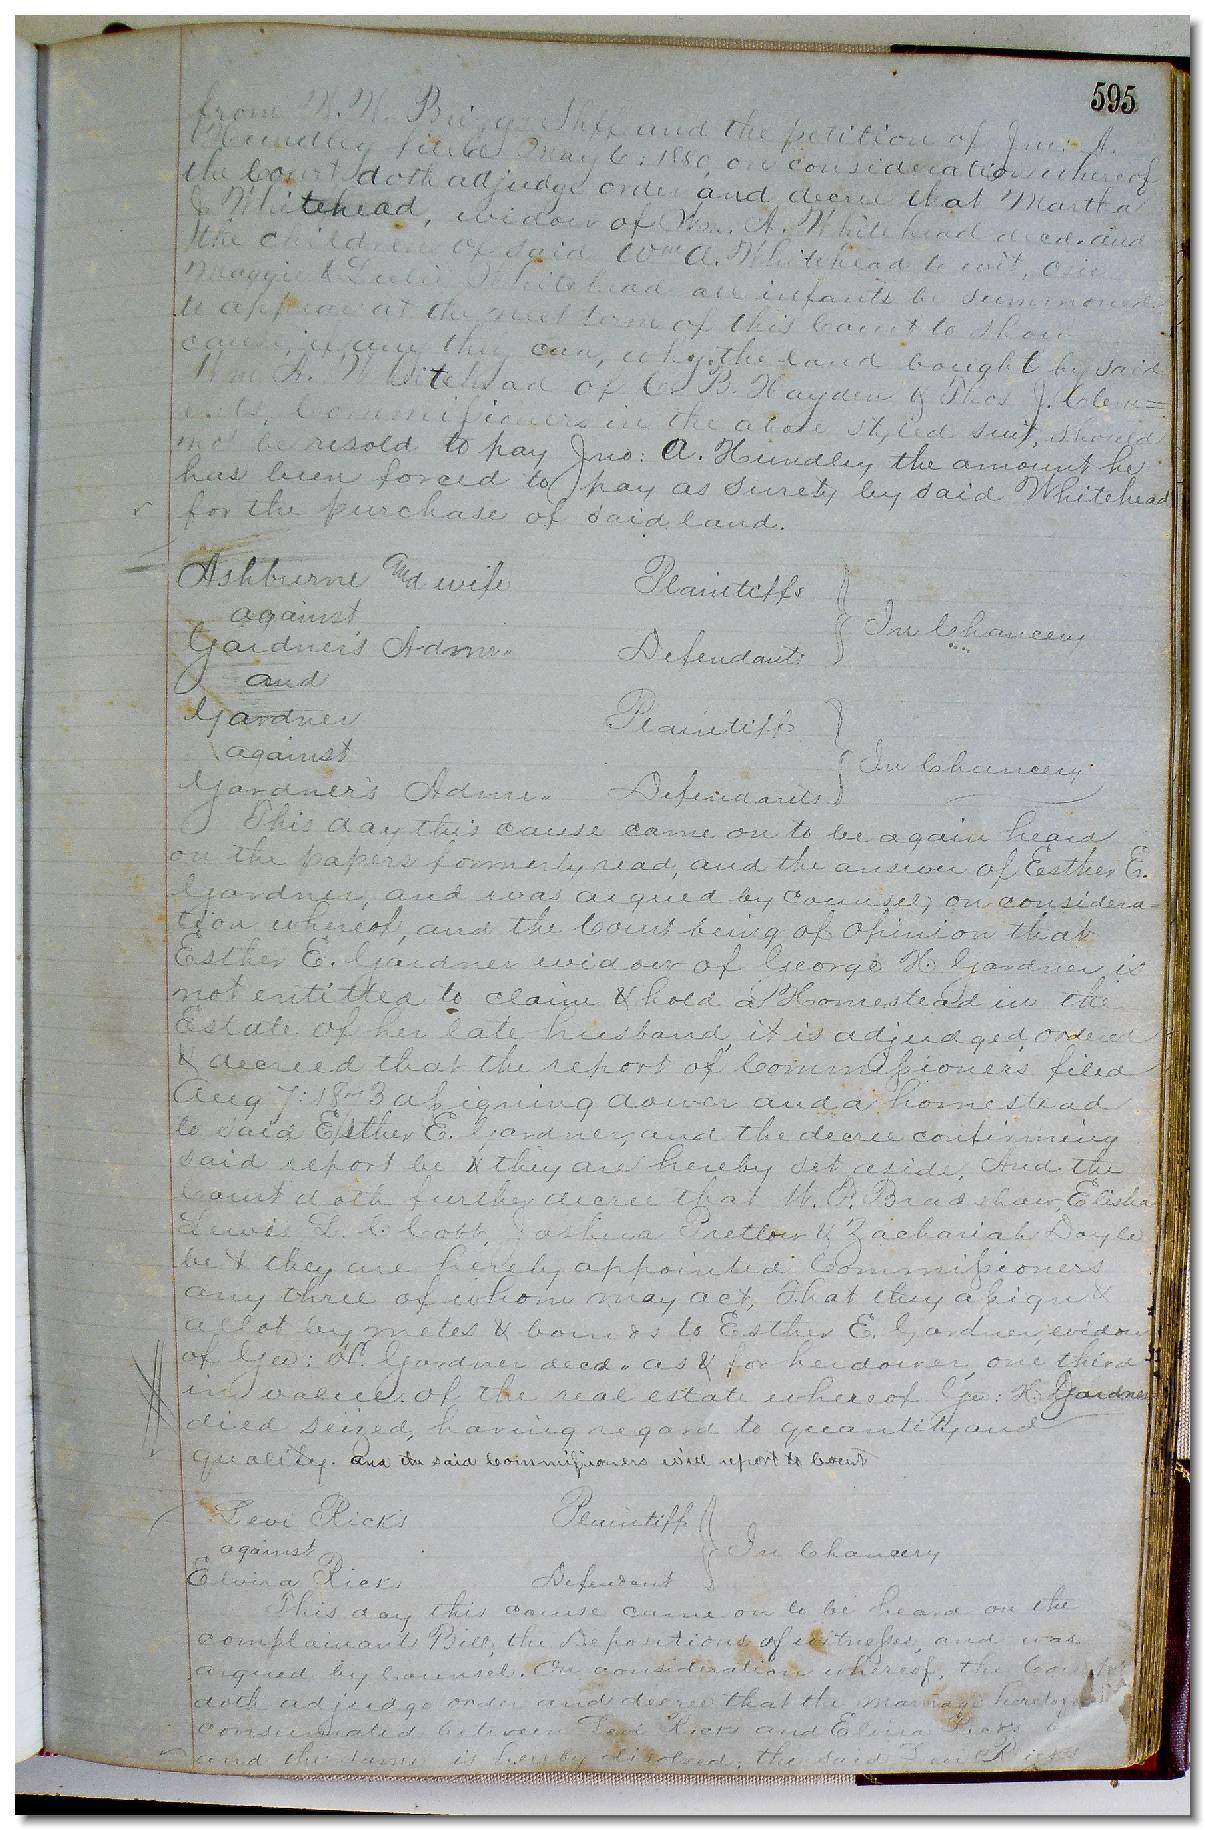 595
from W. W. Briggs Shff and the petition of Jno: A.
Hundley filed May 6: 1880, on consideration whereof
the Court doth adjudge order and decree that Martha
J. Whitehead, widow of Wm. A. Whitehead decd. and
the children of said Wm A. Whitehead to wit,
Maggie & Whitehead all infants be summoned
to appear at the next term of this Court to show
cause, if any they can, why the land bought by said
Wm. A. Whitehead of C. B. Hayden & Thos J. Clem=
ents, Commissioners in the above styled suit, should
not be resold to pay Jno: A. Hundley the amount he
has been forced to pay as surety by said Whitehead
for the purchase of said land.
Ashburne and wife Plaintiffs
against In Chancery
Gardner's Admr. Defendants
and
Gardner Plaintiff
against In Chancery
Gardner's Admr. Defendants
This day this cause came on to be again heard
on the papers formerly read, and the answer of Esther E.
Gardner, and was argued by counsel, on considera=
tion whereof, and the Court being of opinion that
Esther E. Gardner widow of George H. Gardner is
not entitled to claim & hold a Homestead in the
Estate of her late husband, it is adjudged ordered
& decreed that the report of Commissioners filed
Aug 7: 1873 assigning dower and a homestead
to said Esther E. Gardner, and the decree confirming
said report be & they are hereby set aside, And the
Court doth further decree that W. P. Bradshaw, Elisha
Lewis L. C. Cobb, Joshua Pretlow & Zachariah Doyle
be & they are hereby appointed Commissioners
any three of whom may act, that they assign &
allot by metes & bounds to Esther E. Gardner, widow
of Geo: H. Gardner decd. as & for her dower, one third
in value of the real estate whereof Geo: H. Gardner
died seized, having regard to quantity and
quality. and the said Commissioners will report to Court
Levi Ricks Plaintiff
against In Chancery
Elvira Ricks Defendant
This day this cause came on to be heard on the
complainants Bill, the Depositions of witnesses, and was
argued by Counsel. On consideration whereof, the Court
doth adjudge order and decree that the marriage heretofore
consummated between Levi Ricks and Elvira Ricks be
and the same is hereby dissolved, the said Levi Ricks